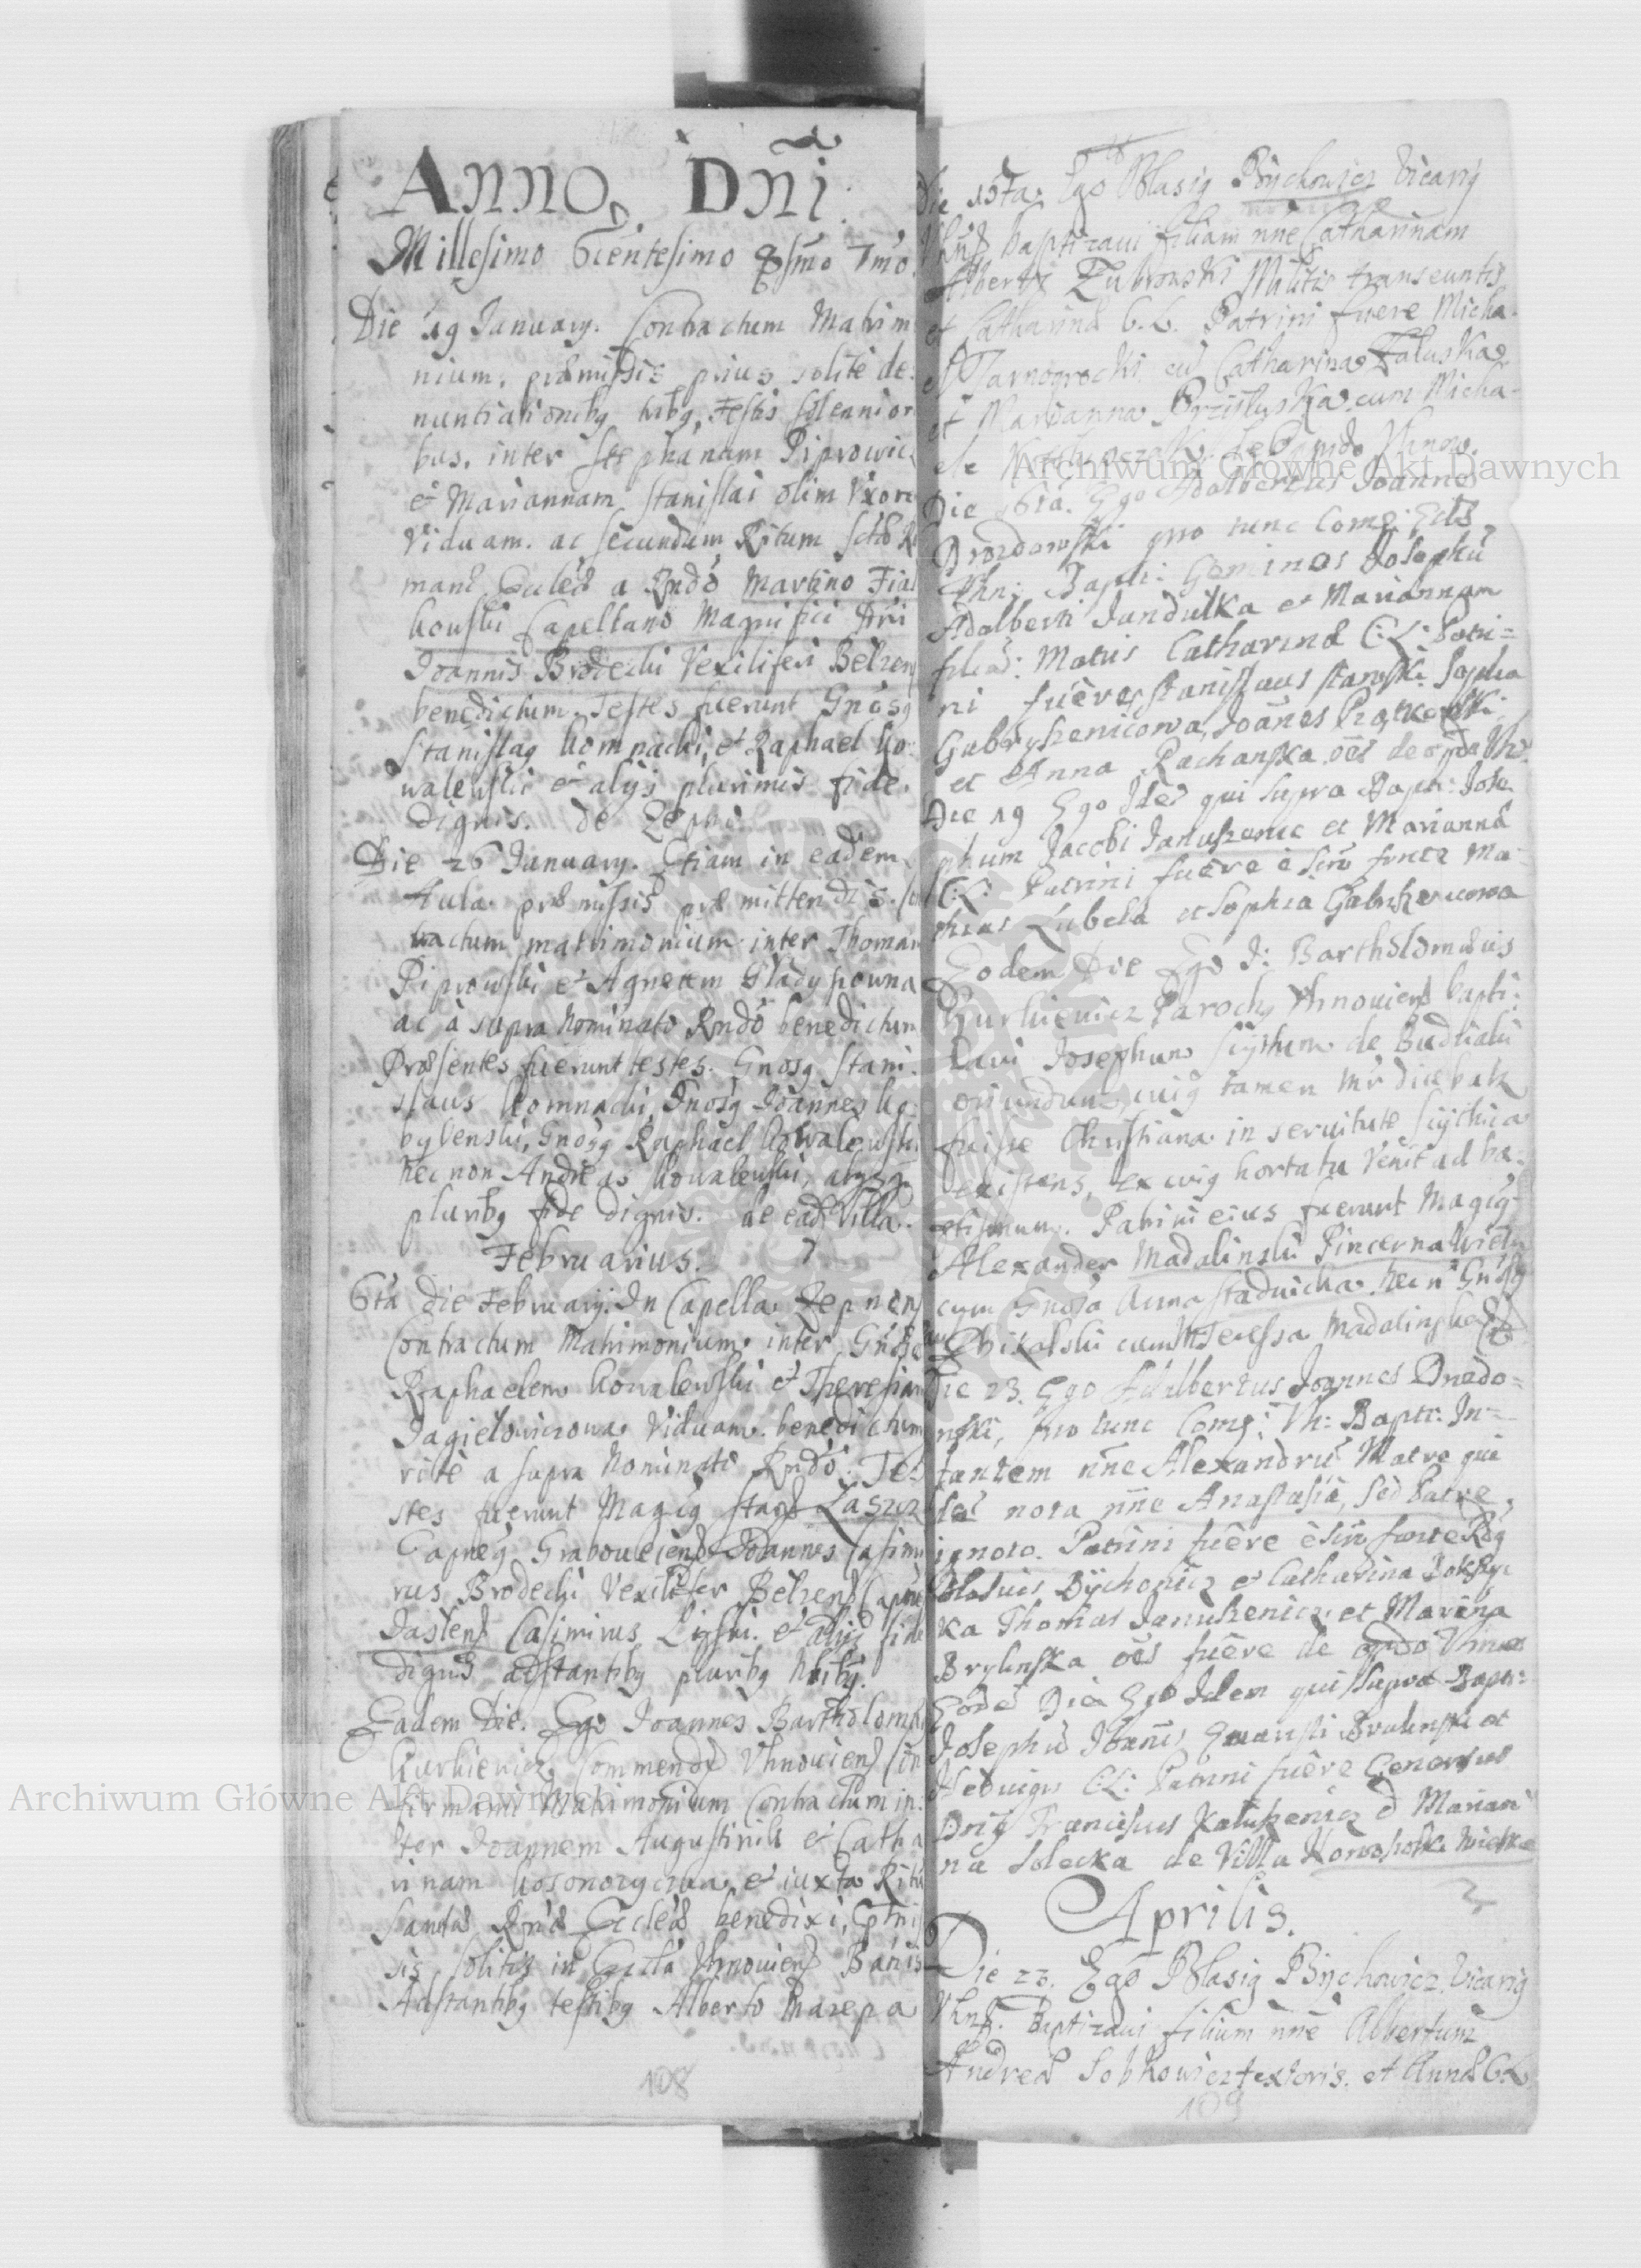 Anno Dñi
Millesimo 6centesimo 8smo 7mo
Die 19 January. Contractum Matrim
nium, præmissis prius solite de.
nuntiationibg tribg, Festis solennior
bus, inter Stephanum Piprowic
et Mariannam Stanislai olim Vxore
Viduam. ac secundum Ritum Sctæ Ro
manæ Eccleæ a Rndo Martino Fial
kouski Capellano Magnifici Dñi
Joannis Brodecki Vexiliferi Belzens
benedictum. Testes fuerunt Gnosg
Stanislag Kompacki, et Raphael Ko
walewski et alijs plurimis fide.
dignis. de Rephi
Die 26 January. Etiam in eadem
Aula præmissis præmittendis. co
tractum matrimonium inter Thomam
Piprowski et Agnetem Gladyszowna
ac à supra Nominato Rndo benedictum
Præsentes fuerunt testes. Gnosg Stani.
slaus Komnacki, Gnosg Joannes Ko
bylenski, Gnosg Raphael Kowalewski
nec non Andreas Kowalewski, alysq
pluribg fide dignis. de ead Villa.
Februarius.
6ta die February. In Capella Repnens
Contractum Matrimonium inter Gnosu
Raphaelem Kowalewski et Theresiam
Jagielowiczowa Viduam. benedictum
ritè a supra Nominato Rndo. Te
stes fuerunt Magcg Stans Laszcz
Capneg Grabouiens Joannes Casimi
rus Brodecki Vexilifer Belzens Capne
Jaslens Casimirus Lipski. et alijs fide
dignis adstantibg pluribg
Eadem Die. Ego Joannes Bartholomæ
Kurkiewicz Commends Vhnouiens Con
firmaui Matrimonium Contractum in
ter Joannem Augustinik et Catha
rinam Kosonozyczna et iuxta Ritu
Sanctæ Rnæ Eccleæ benedixi,
sis solitis in Eccla Vhnouiens Banis
Adstantibg testibg Alberto Mazepa
108
Die 15ta Ego Blasig Bychowicz Vicarig
Vhns baptizaui filiam nne Catharinam
Alberti Zubrowski Militis transeuntis
et Catharinæ C.L. Patrini fuere Micha
el Tarnogrocki cũ Catharina Zaluska
et Marianna Brzistuska cum Micha-
ele de Oppido Vhnow.
Die 16ta. Ego Adalbertus Joannes
Drozdowski pro tunc Come: Ecls
Vhn: Bapti: Geminos Josephũ
Adalberti Jandulka et Mariannam
filias: Matris Catharinæ C:L: Patri=
ni fuêre Stanislaus Starski Sophia
Gabryszenicowa, Joães Piątkowski
et Anna Rachanska oẽs de oppdo Vhn.
Die 19 Ego Idẽ qui supra Bapti: Jose
phum Jacobi Januszewic et Mariannæ
C:L: Patrini fuêre è sacro fonte Ma
thias Lubela et Sophia Gabryszewicowa
Eodem Die Ego J: Bartholomæus
Kurkiewicz Parochg Vhnouiens bapti:
zaui Josephum Scythum de Budziaki
oriundum, cuig tamen Mr dicebatr
fuisse Christiana in seruitute Scythica
existens, ex cuig hortatu Venit ad ba=
ptismum. Patrini eius fuerunt Magcg
Alexander Madalinski Pincerna Wielu
cum Gnosa Anna Stadnicka. nec n Gnosg
Phikalski cum Teressa Madalinska
Die 23. Ego Adalbertus Joannes Drozdo=
wski, pro tunc Come: Vh: Bapti: In=
fantem nñe Alexandrũ Matre qui
dẽ nota nñe Anastasia, sed Patre
ignoto. Patrini fuêre è sacro fonte Rdg
Blasius Bychowicz et Catharina
ka Thomas Januszewicz et Marina
Brylinska oẽs fuêre de oppdo Vhnow
Eodẽ Die Ego Idem qui supra Bapti:
Josephũ Joãnis Ewansti Brulinski et
Heduigis C:L: Patrini fuêre Generosus
Dñg Franciscus Kaluszewicz et Marian
na Solecka de Villa
Aprilis.
Die 23. Ego Blasig Bychowicz Vicarig
Vhns. Baptizaui filium nñe Albertum
Andreæ Sobkowicz textoris. et Annæ C.L.
109
Archiwum Główne Akt Dawnych
Archiwum Główne Akt Dawnych